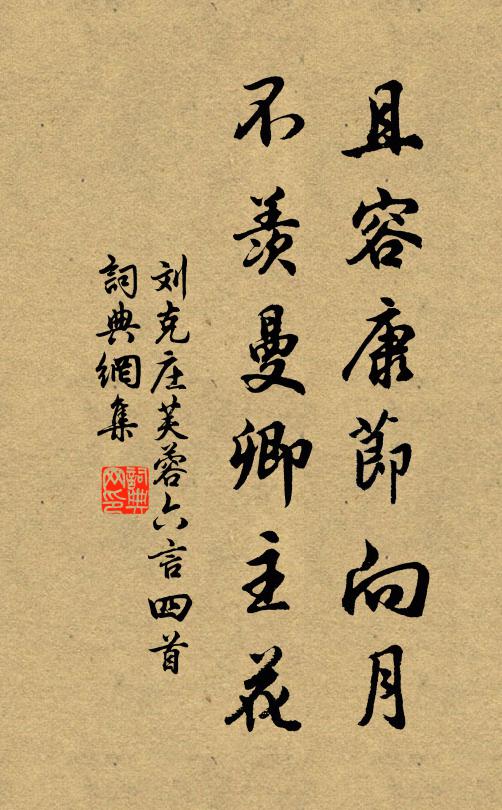 且容康節向月
不羨曼卿主花
刘克庄芙蓉六言四首
詞典網集
詞典
网印